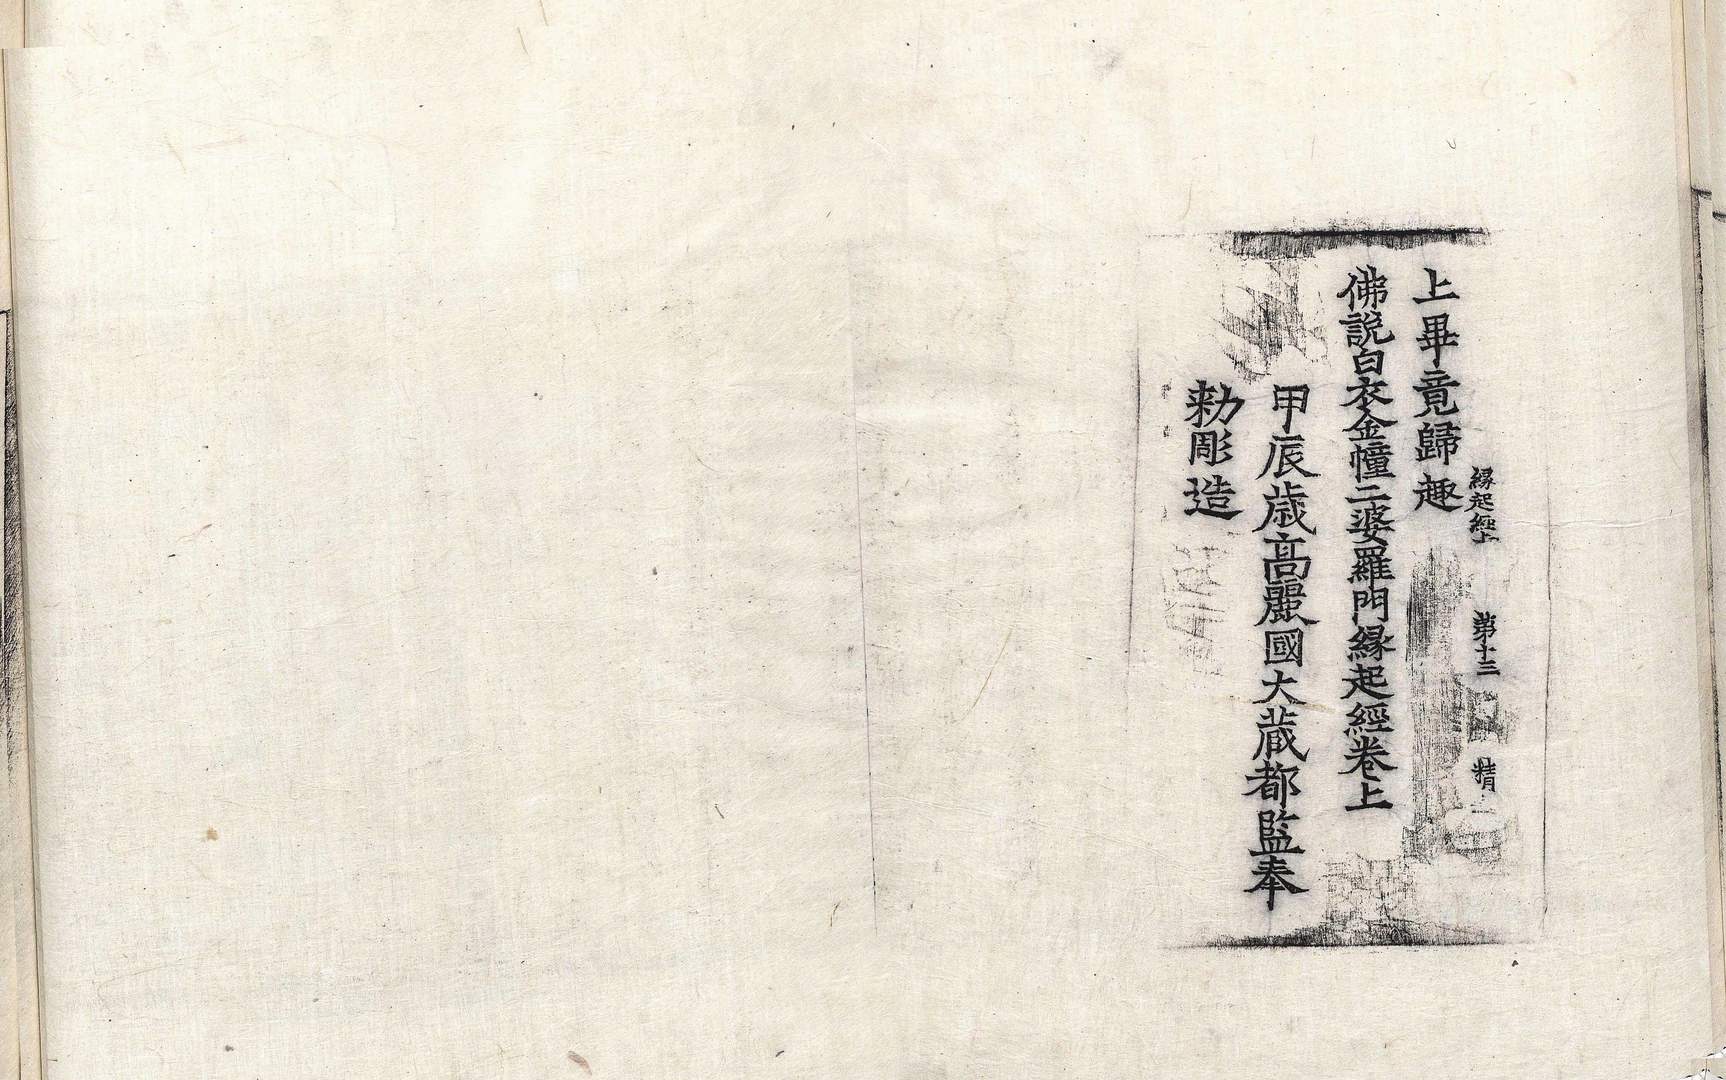 緣起經上 第十三 精
上畢竟歸趣
佛說白衣金幢二婆羅門緣起經卷上
甲辰歲高麗國大藏都監奉
勅彫造